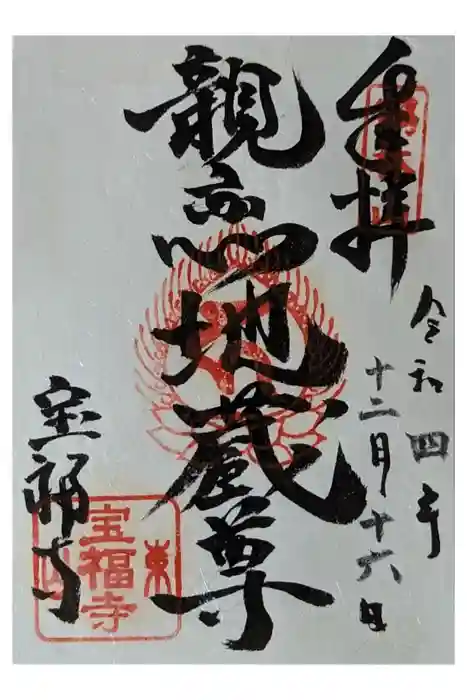 奉拝
令和四年
十二月十六日
親恋地蔵尊
宝福寺
東
宝福寺
山